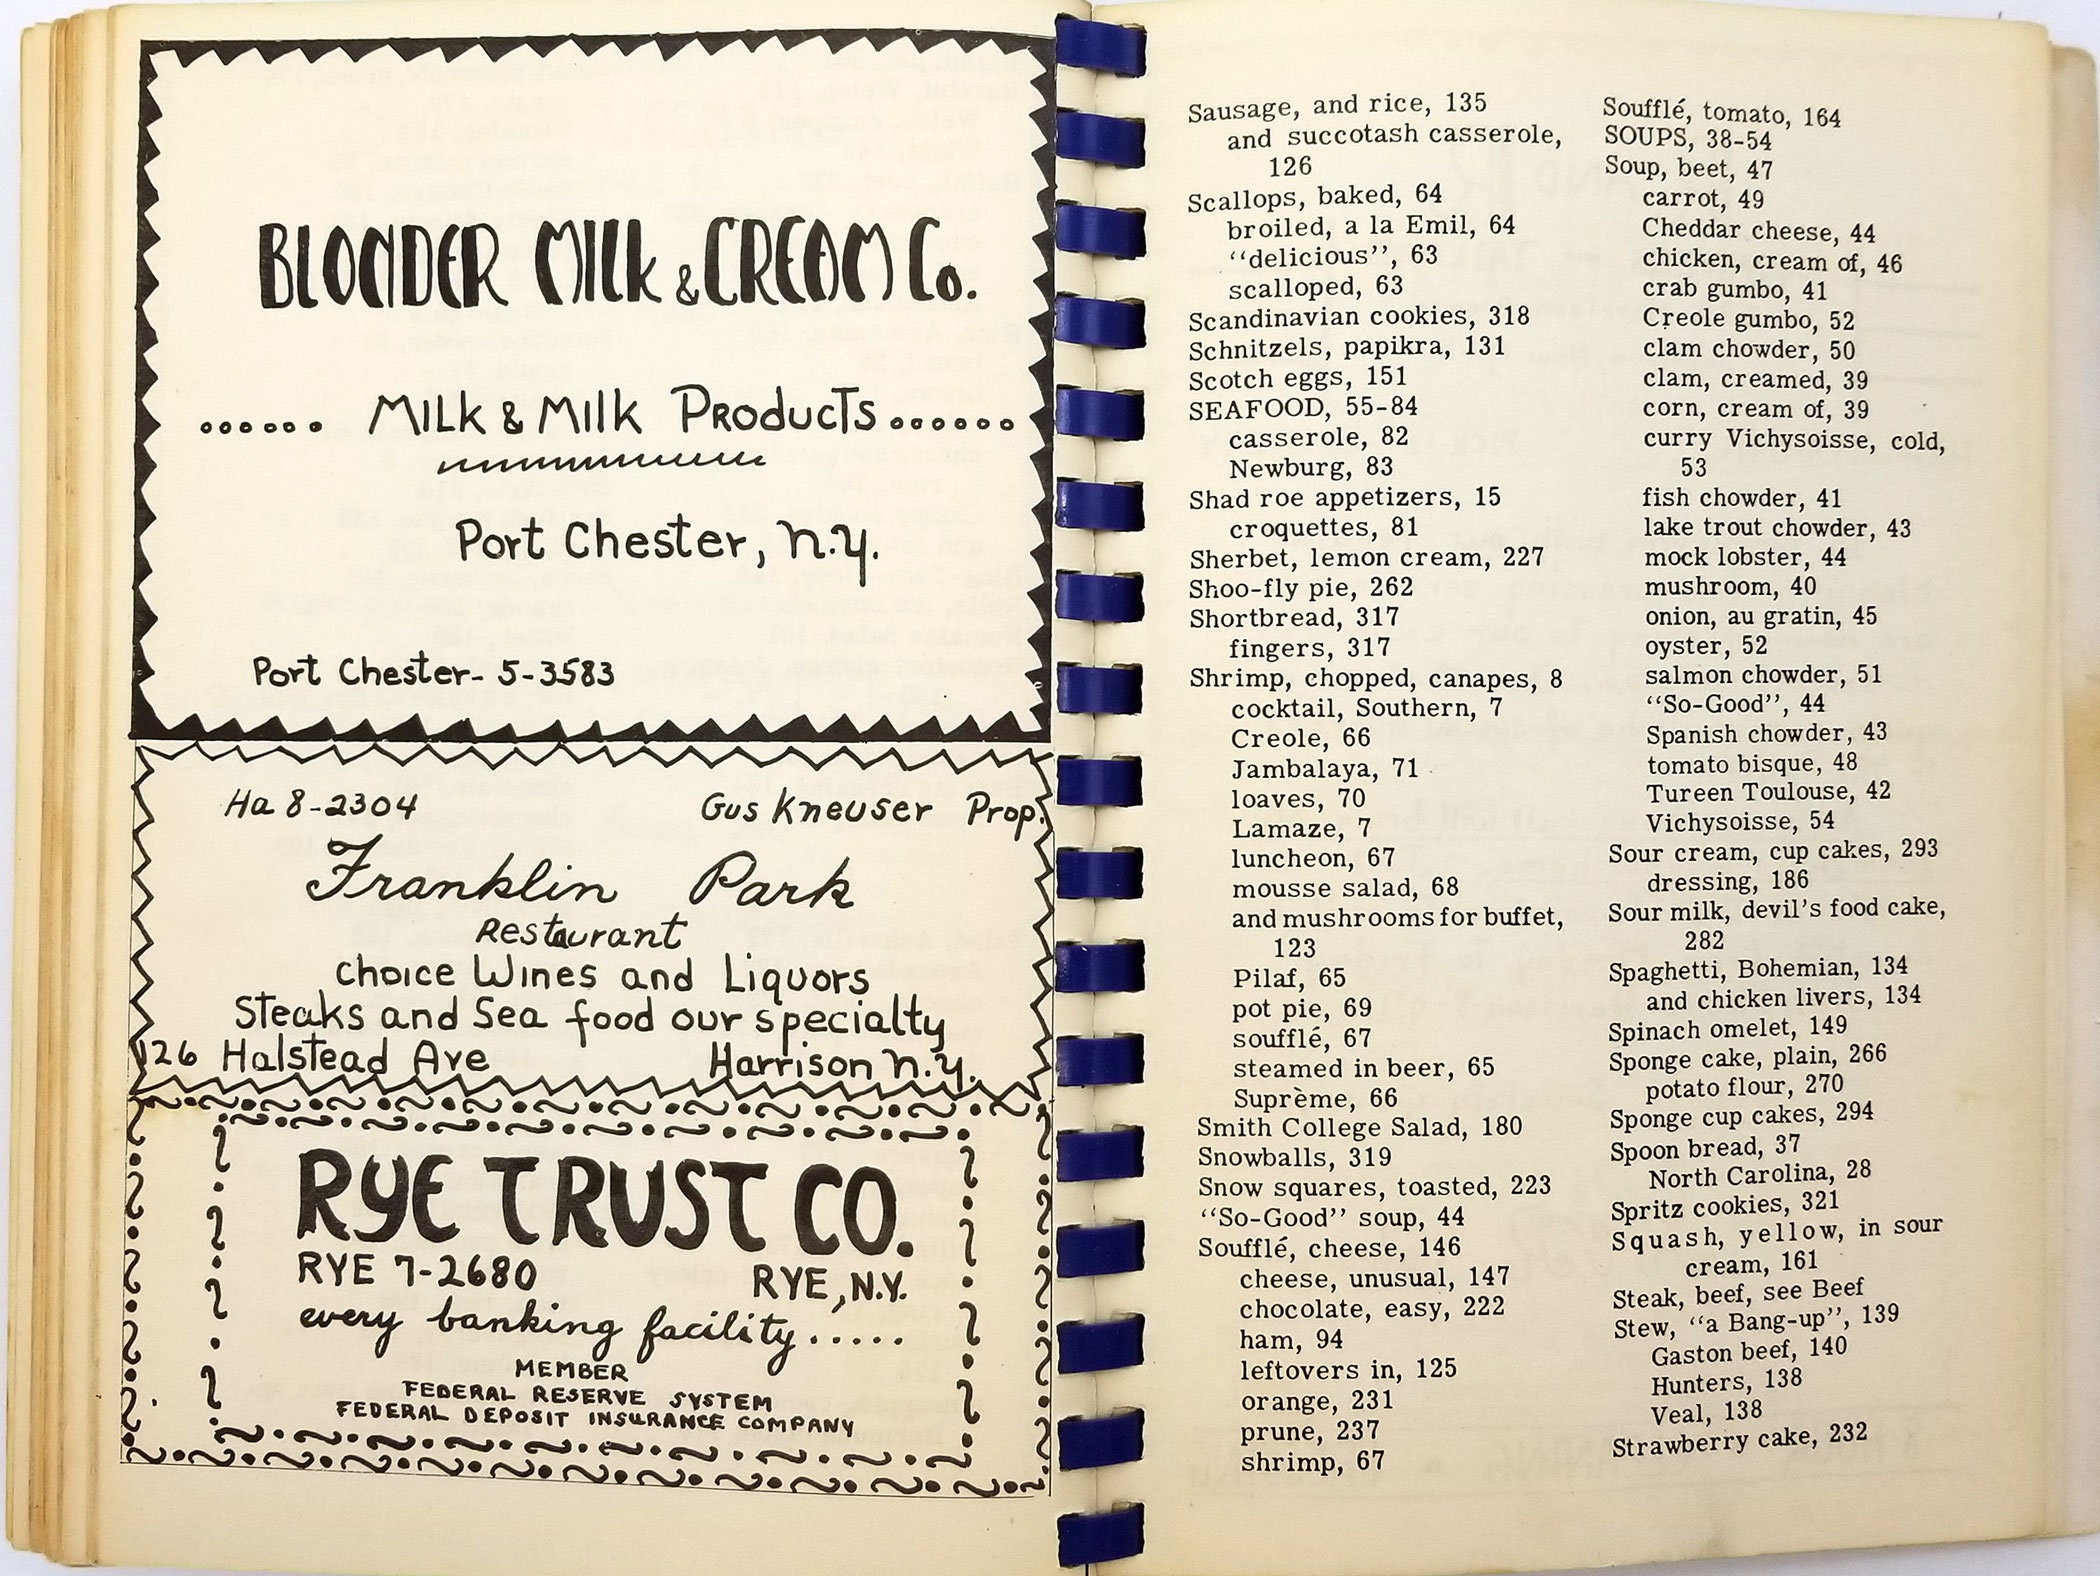 BLONDER MILK & CREAM Co.
...... MILK & MILK PRODUCTS ......
Port Chester, N.Y.
Port Chester- 5-3583
Ha 8-2304 Gus Kneuser Prop.
Franklin Park
Restaurant
Choice Wines and Liquors
Steaks and Sea food our specialty
126 Halstead Ave Harrison N.Y.
RYE TRUST CO.
RYE 7-2680 RYE, N.Y.
every banking facility.....
MEMBER
FEDERAL RESERVE SYSTEM
FEDERAL DEPOSIT INSURANCE COMPANY
Sausage, and rice, 135
and succotash casserole,
126
Scallops, baked, 64
broiled, a la Emil, 64
"delicious", 63
scalloped, 63
Scandinavian cookies, 318
Schnitzels, papikra, 131
Scotch eggs, 151
SEAFOOD, 55-84
casserole, 82
Newburg, 83
Shad roe appetizers, 15
croquettes, 81
Sherbet, lemon cream, 227
Shoo-fly pie, 262
Shortbread, 317
fingers, 317
Shrimp, chopped, canapes, 8
cocktail, Southern, 7
Creole, 66
Jambalaya, 71
loaves, 70
Lamaze, 7
luncheon, 67
mousse salad, 68
and mushrooms for buffet,
123
Pilaf, 65
pot pie, 69
soufflé, 67
steamed in beer, 65
Suprème, 66
Smith College Salad, 180
Snowballs, 319
Snow squares, toasted, 223
"So-Good" soup, 44
Soufflé, cheese, 146
cheese, unusual, 147
chocolate, easy, 222
ham, 94
leftovers in, 125
orange, 231
prune, 237
shrimp, 67
Soufflé, tomato, 164
SOUPS, 38-54
Soup, beet, 47
carrot, 49
Cheddar cheese, 44
chicken, cream of, 46
crab gumbo, 41
Creole gumbo, 52
clam chowder, 50
clam, creamed, 39
corn, cream of, 39
curry Vichysoisse, cold,
53
fish chowder, 41
lake trout chowder, 43
mock lobster, 44
mushroom, 40
onion, au gratin, 45
oyster, 52
salmon chowder, 51
"So-Good", 44
Spanish chowder, 43
tomato bisque, 48
Tureen Toulouse, 42
Vichysoisse, 54
Sour cream, cup cakes, 293
dressing, 186
Sour milk, devil's food cake,
282
Spaghetti, Bohemian, 134
and chicken livers, 134
Spinach omelet, 149
Sponge cake, plain, 266
potato flour, 270
Sponge cup cakes, 294
Spoon bread, 37
North Carolina, 28
Spritz cookies, 321
Squash, yellow, in sour
cream, 161
Steak, beef, see Beef
Stew, "a Bang-up", 139
Gaston beef, 140
Hunters, 138
Veal, 138
Strawberry cake, 232